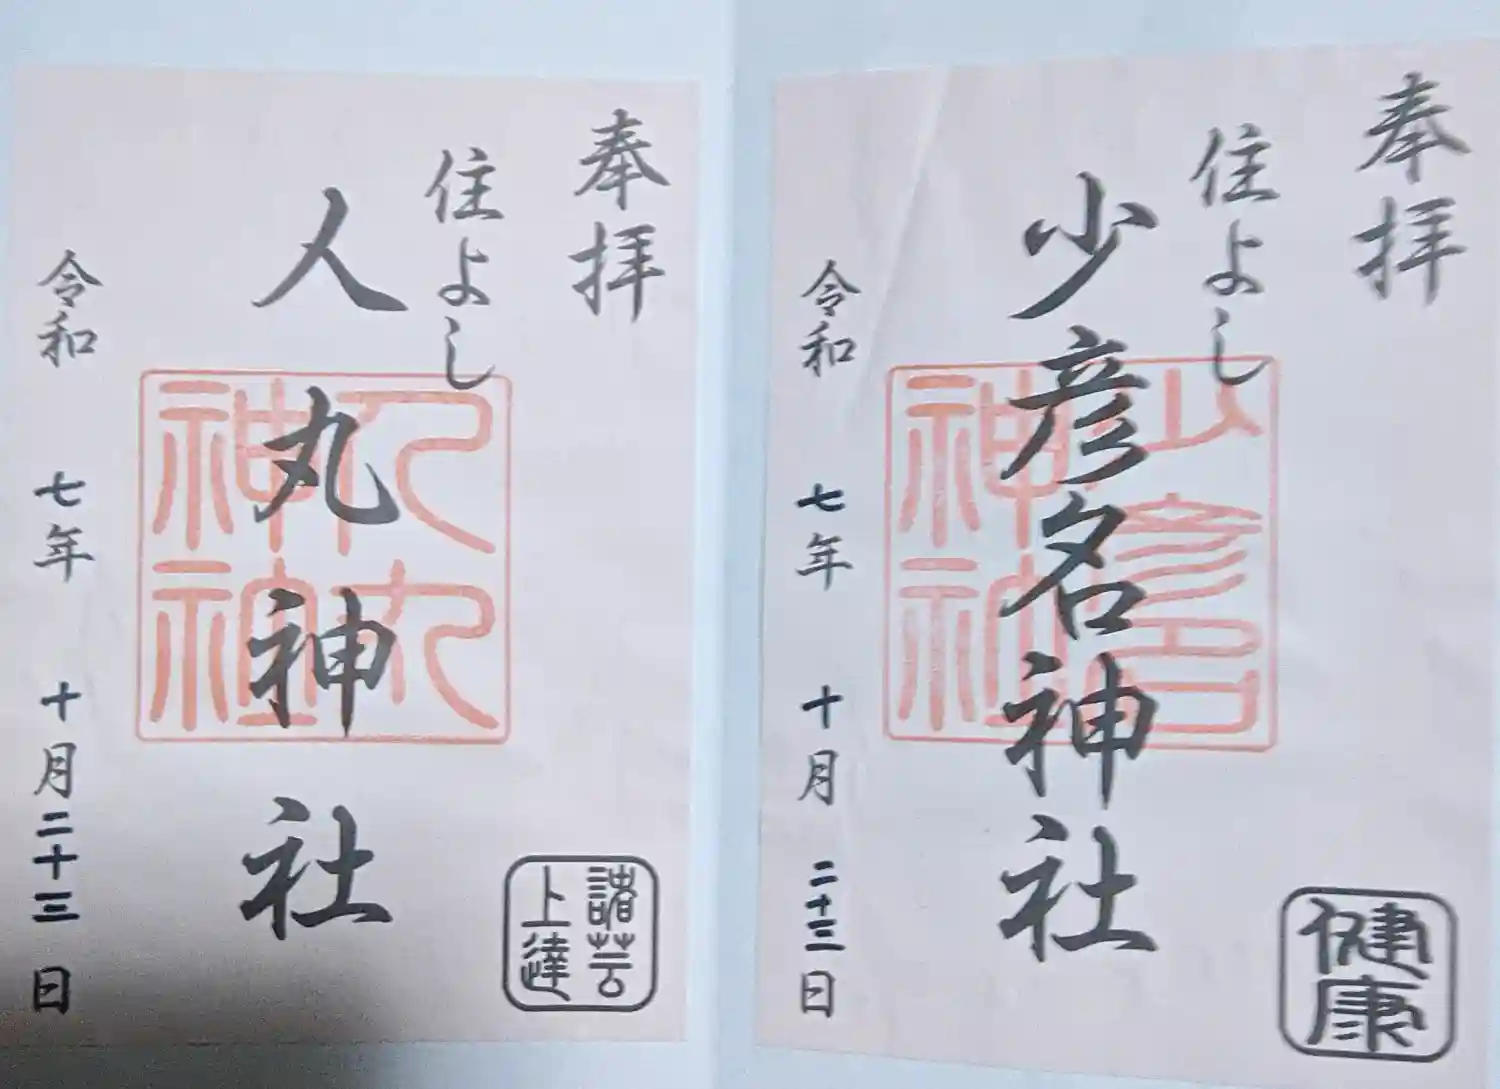 奉拝
住よし
少彦名神社
少彦名
神社
令和 七年 十月 二十三日
健康
奉拝
住よし
人丸神社
人丸
神社
令和 七年 十月二十三日
諸芸
上達